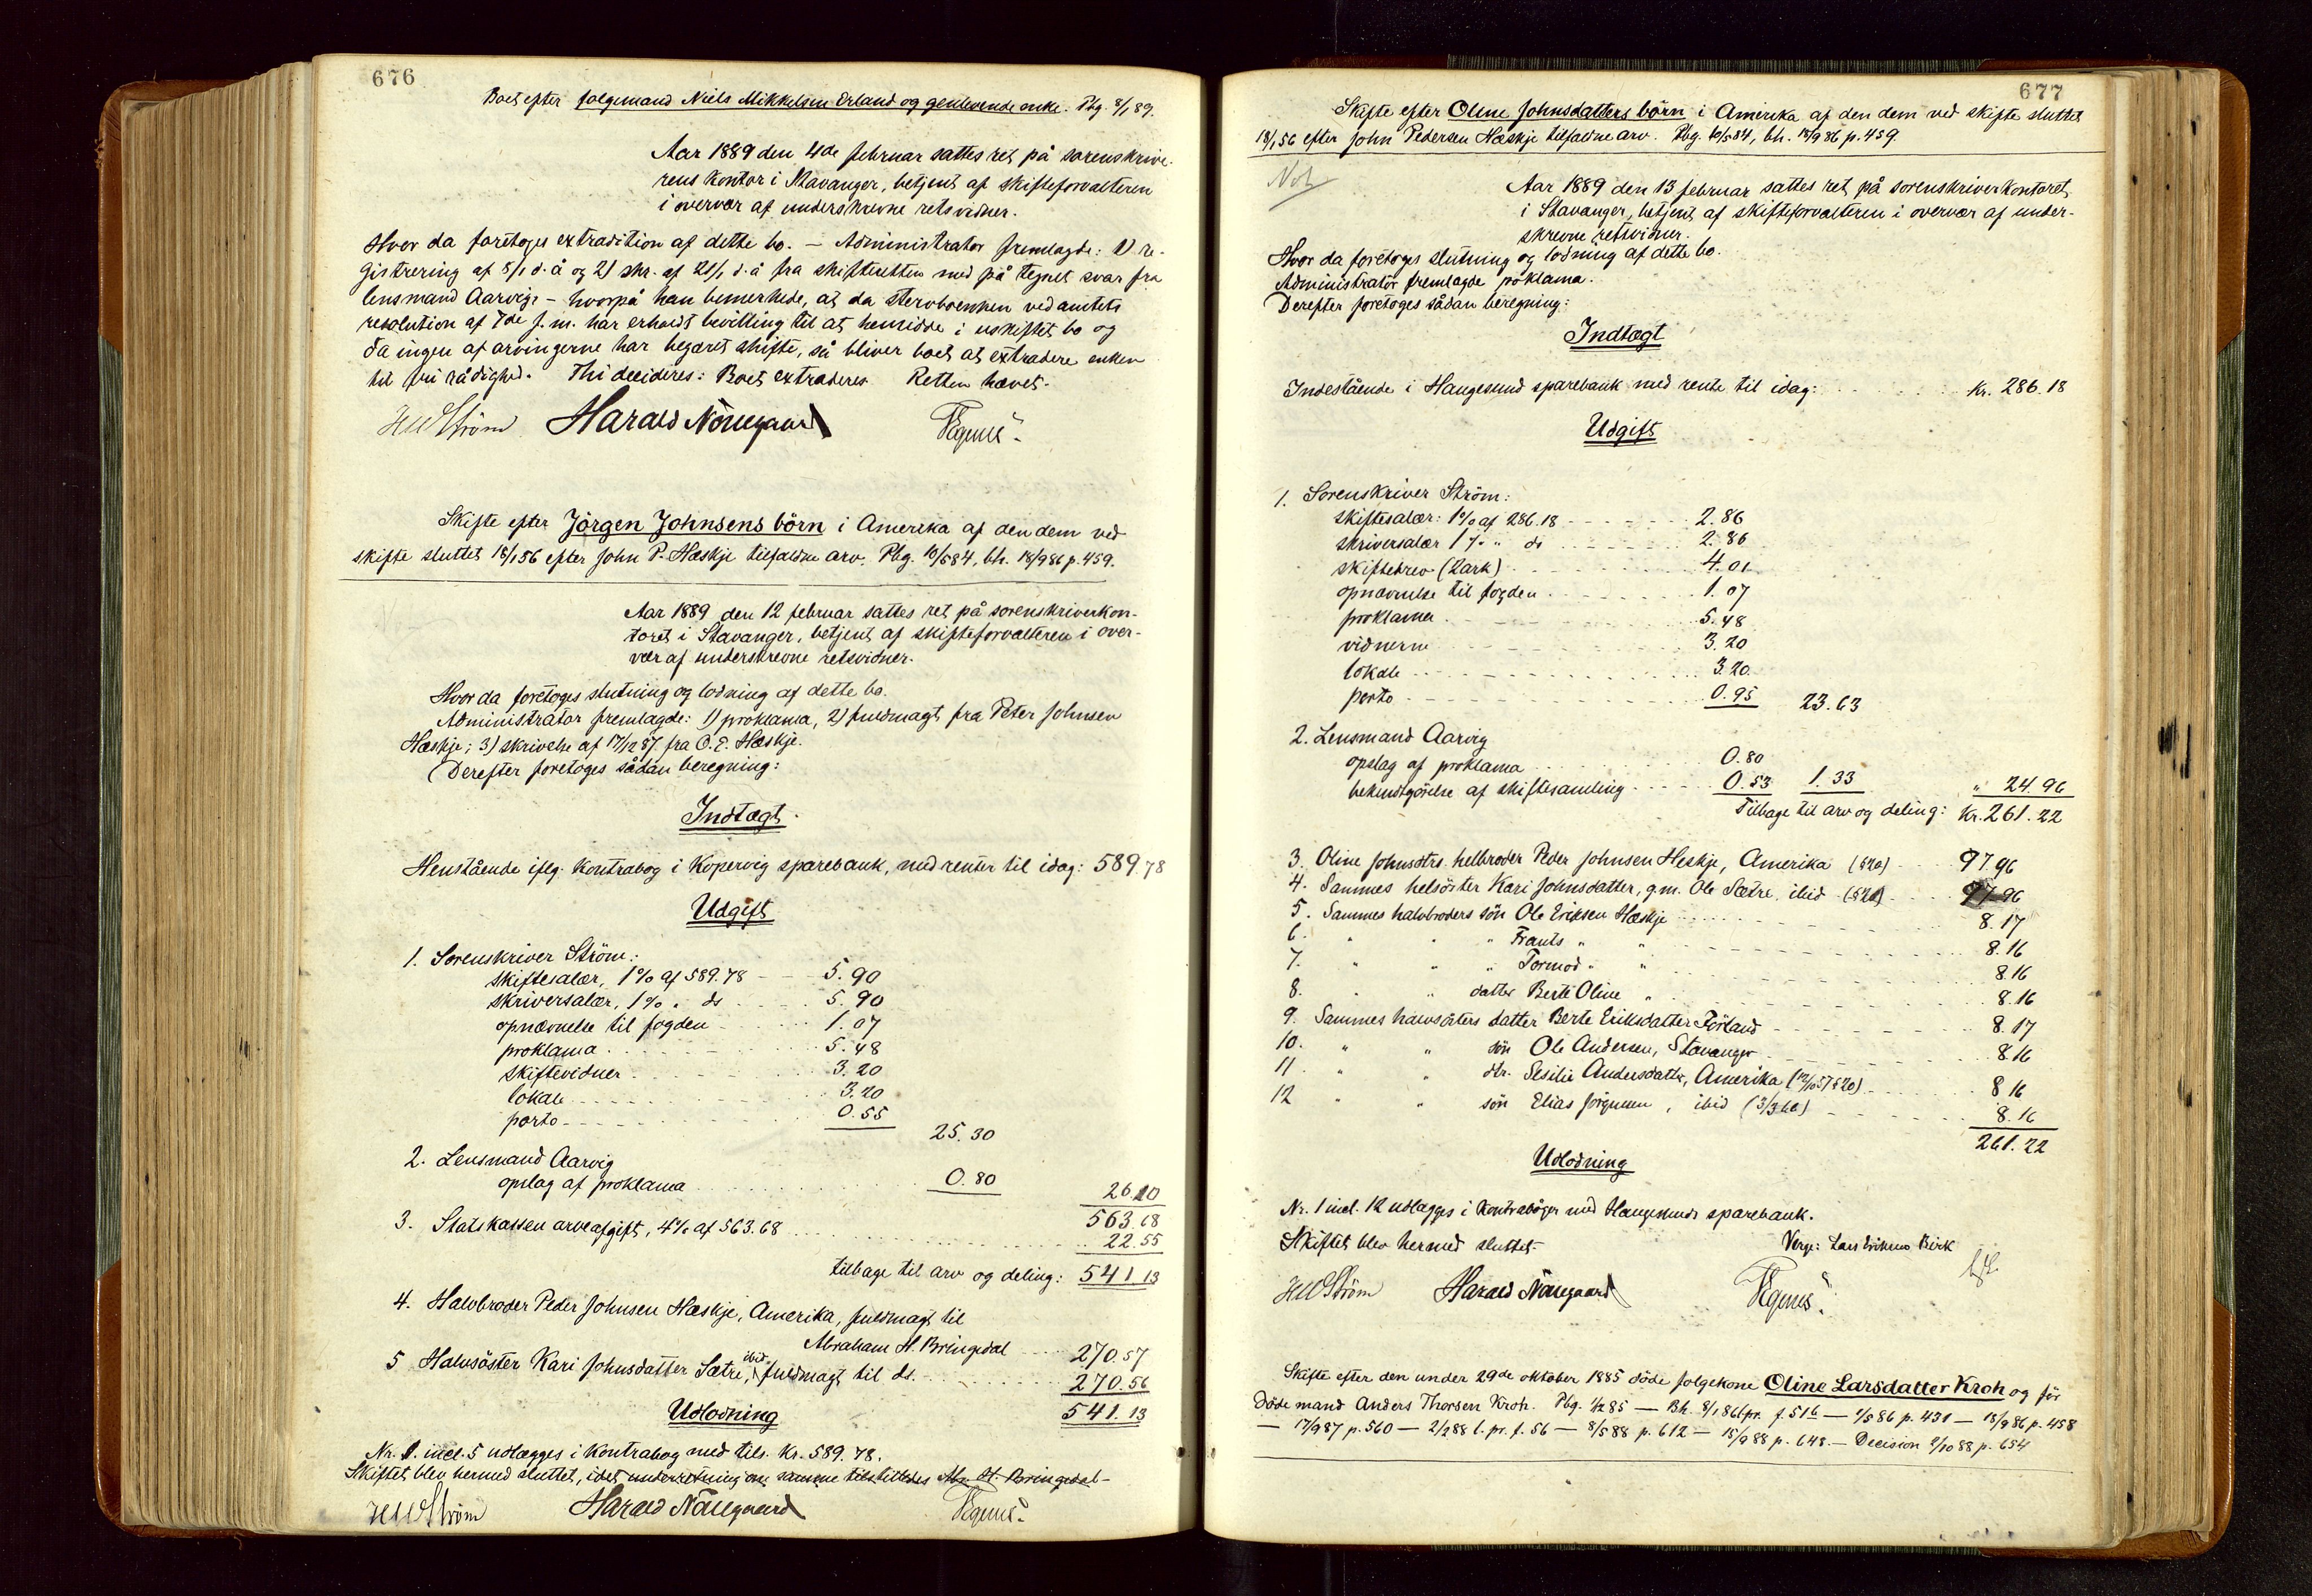 676
Boet efter følgemand Niels Mikkelsen Erland og genlevende enke. Pbg. 8/1 89.
Aar 1889 den 4de februar sattes ret på sorenskrive-
rens kontor i Stavanger, betjent af skifteforvalteren
i overvær af underskrevne retsvidner.
Hvor da foretoges extradition af dette bo. — Administrator fremlagde: 1) re-
gistrering af 8/1 d. å og 2) skr. af 21/1 d. å fra skifteretten med på tegnet svar fra
lensmand Aarvig – hvorpå han bemerkede, at da stervboenken ved amtets
resolution af 7de f. m. har erholdt bevilling til at hensidde i uskiftet bo og
da ingen af arvingerne har begæret skifte, så bliver boet at extradere enken
til fri rådighed. Thi decideres: Boet extraderes. Retten hævet.
HWStröm Harald Nörregaard
Skifte efter Jörgen Johnsens börn i Amerika af den dem ved
skifte sluttet 18/1 56 efter John P. Hæskje tilfaldne arv. Pbg. 10/5 84, bh. 18/9 86 p. 459.
Aar 1889 den 12 februar sattes ret på sorenskriverkon-
toret i Stavanger, betjent af skifteforvalteren i over-
vær af underskrevne retsvidner.
Hvor da foretoges slutning og lodning af dette bo.
Administrator fremlagde: 1) proklama, 2) fuldmagt fra Peter Johnsen
Hæskje; 3) skrivelse af 17/12 87 fra O. E. Hæskje.
Derefter foretoges sådan beregning:
Indtægt.
Henstående iflg. kontrabog i Kopervig sparebank, med renter til idag: 589.78
Udgift
1. Sorenskriver Ström:
skiftesalær, 1% af 589.78 5.90
skriversalær, 1% " do 5.90
opnævnelse til fogden 1.07
proklama 5.48
skiftevidner 3.20
lokale 3.20
porto 0.55 25.30
2. Lensmand Aarvig
opslag af proklama 0.80 26.10
563.68
3. Statskassen arveafgift, 4% af 563.68 22.55
tilbage til arv og deling: 541.13
4. Halvbroder Peder Johnsen Hæskje, Amerika, fuldmagt til
Abraham H. Bringedal 270.57
5 Halvsöster Kari Johnsdatter Sætre, ibid. fuldmagt til ds. 270.56
541.13
Udlodning
Nr. 1. incl. 5 udlægges i kontrabog med tils. Kr. 589.78.
Skiftet blev hermed sluttet, idet underretning om samme tilstilledes Abr. H. Bringedal –
HWStröm Harald Nörregaard
677
Skifte efter Oline Johnsdatters börn i Amerika af den dem ved skifte sluttet
18/1 56 efter John Pedersen Hæskje tilfaldne arv. Pbg. 10/5 84, bh. 18/9 86 p. 459.
Not
Aar 1889 den 13 februar sattes ret på sorenskriverkontoret
i Stavanger, betjent af skifteforvalteren i overvær af under-
skrevne retsvidner.
Hvor da foretoges slutning og lodning af dette bo.
Administrator fremlagde proklama.
Derefter foretoges sådan beregning:
Indtægt
Indestående i Haugesund sparebank med rente til idag: Kr. 286.18
Udgift
1. Sorenskriver Ström:
skiftesalær: 1% af 286.18 2.86
skriversalær 1% " do 2.86
skiftebrev (2 ark) 4.01
opnævnelse til fogden 1.07
proklama 5.48
vidnerne 3.20
lokale 3.20
porto 0.95 23.63
2. Lensmand Aarvig
opslag af proklama 0.80
bekendtgörelse af skiftesamling 0.53 1.33 " 24.96
Tilbage til arv og deling: Kr. 261.22
3. Oline Johnsdtrs. helbroder Peder Johnsen Heskje, Amerika (520) 97.96
4. Sammes helsöster Kari Johnsdatter, g.m. Ole Sætre, ibid (520) 97.96
5. Sammes halvbroders sön Ole Eriksen Hæskje 8.17
6. " " " Frants " " 8.16
7. " " " Tormod " " 8.16
8. " " datter Berte Oline " 8.16
9. Sammes halvsösters datter Berte Eriksdatter Förland 8.17
10. " " sön Ole Andersen, Stavanger 8.16
11. " " dtr. Sesilie Andersdatter, Amerika 8 16
12 " " sön Elias Jörgensen, ibid 8.16
261.22
Udlodning
Nr. 1 incl. 12 udlægges i kontrabøger med Haugesunds sparebank.
Skiftet blev hermed sluttet. Verge: Lars Eriksens Birk
HWStröm Harald Nörregaard
Skifte efter den under 29de oktober 1885 döde følgekone Oline Larsdatter Kroh og för
döde mand Anders Thorsen Kroh. Pbg. 1/12 85 — Bh. 8/1 86 f.pr. f. 516 — 1/5 86 p. 431 — 18/9 86 p. 458
— 17/9 87 p. 560 — 2/2 88 f. pr. f. 56 — 8/5 88 p. 612 — 15/9 88 p. 648. — Decision 2/10 88 p. 654